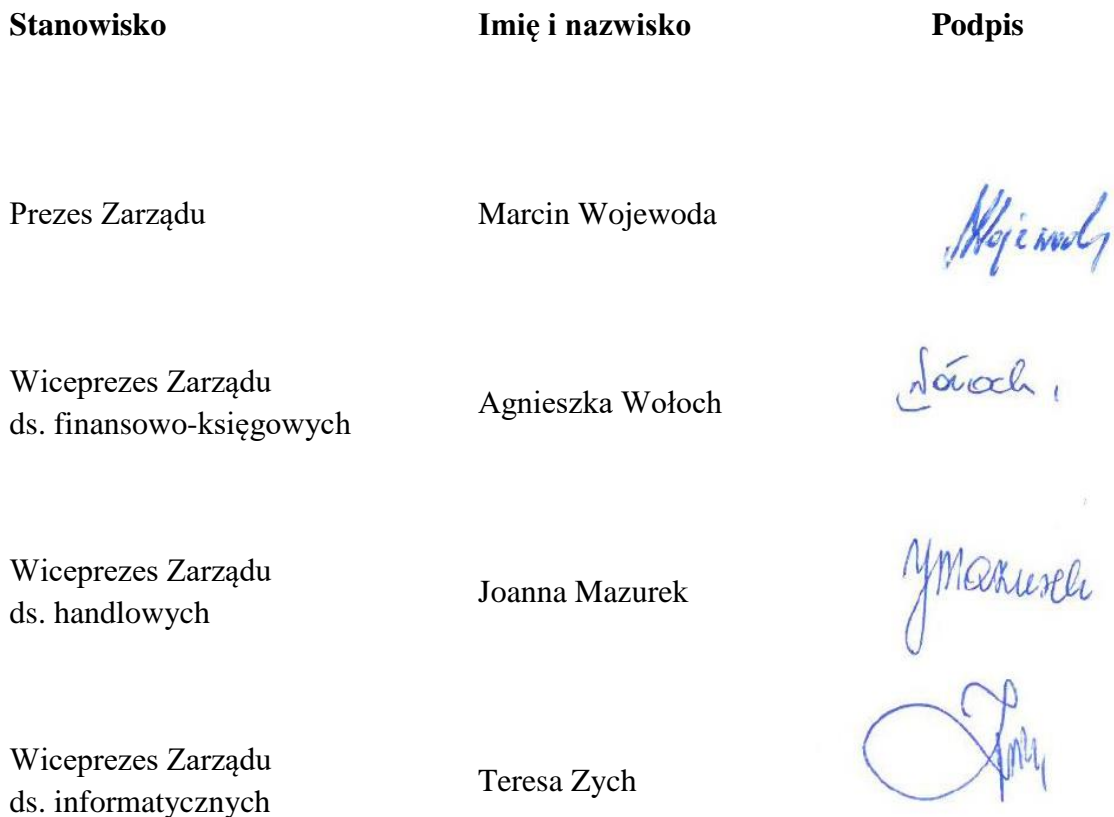 Stanowisko Imię i nazwisko Podpis
Prezes Zarządu Marcin Wojewoda
Wiceprezes Zarządu
ds. finansowo-księgowych
Agnieszka Wołoch
Wiceprezes Zarządu
ds. handlowych
Joanna Mazurek
Wiceprezes Zarządu
ds. informatycznych
Teresa Zych